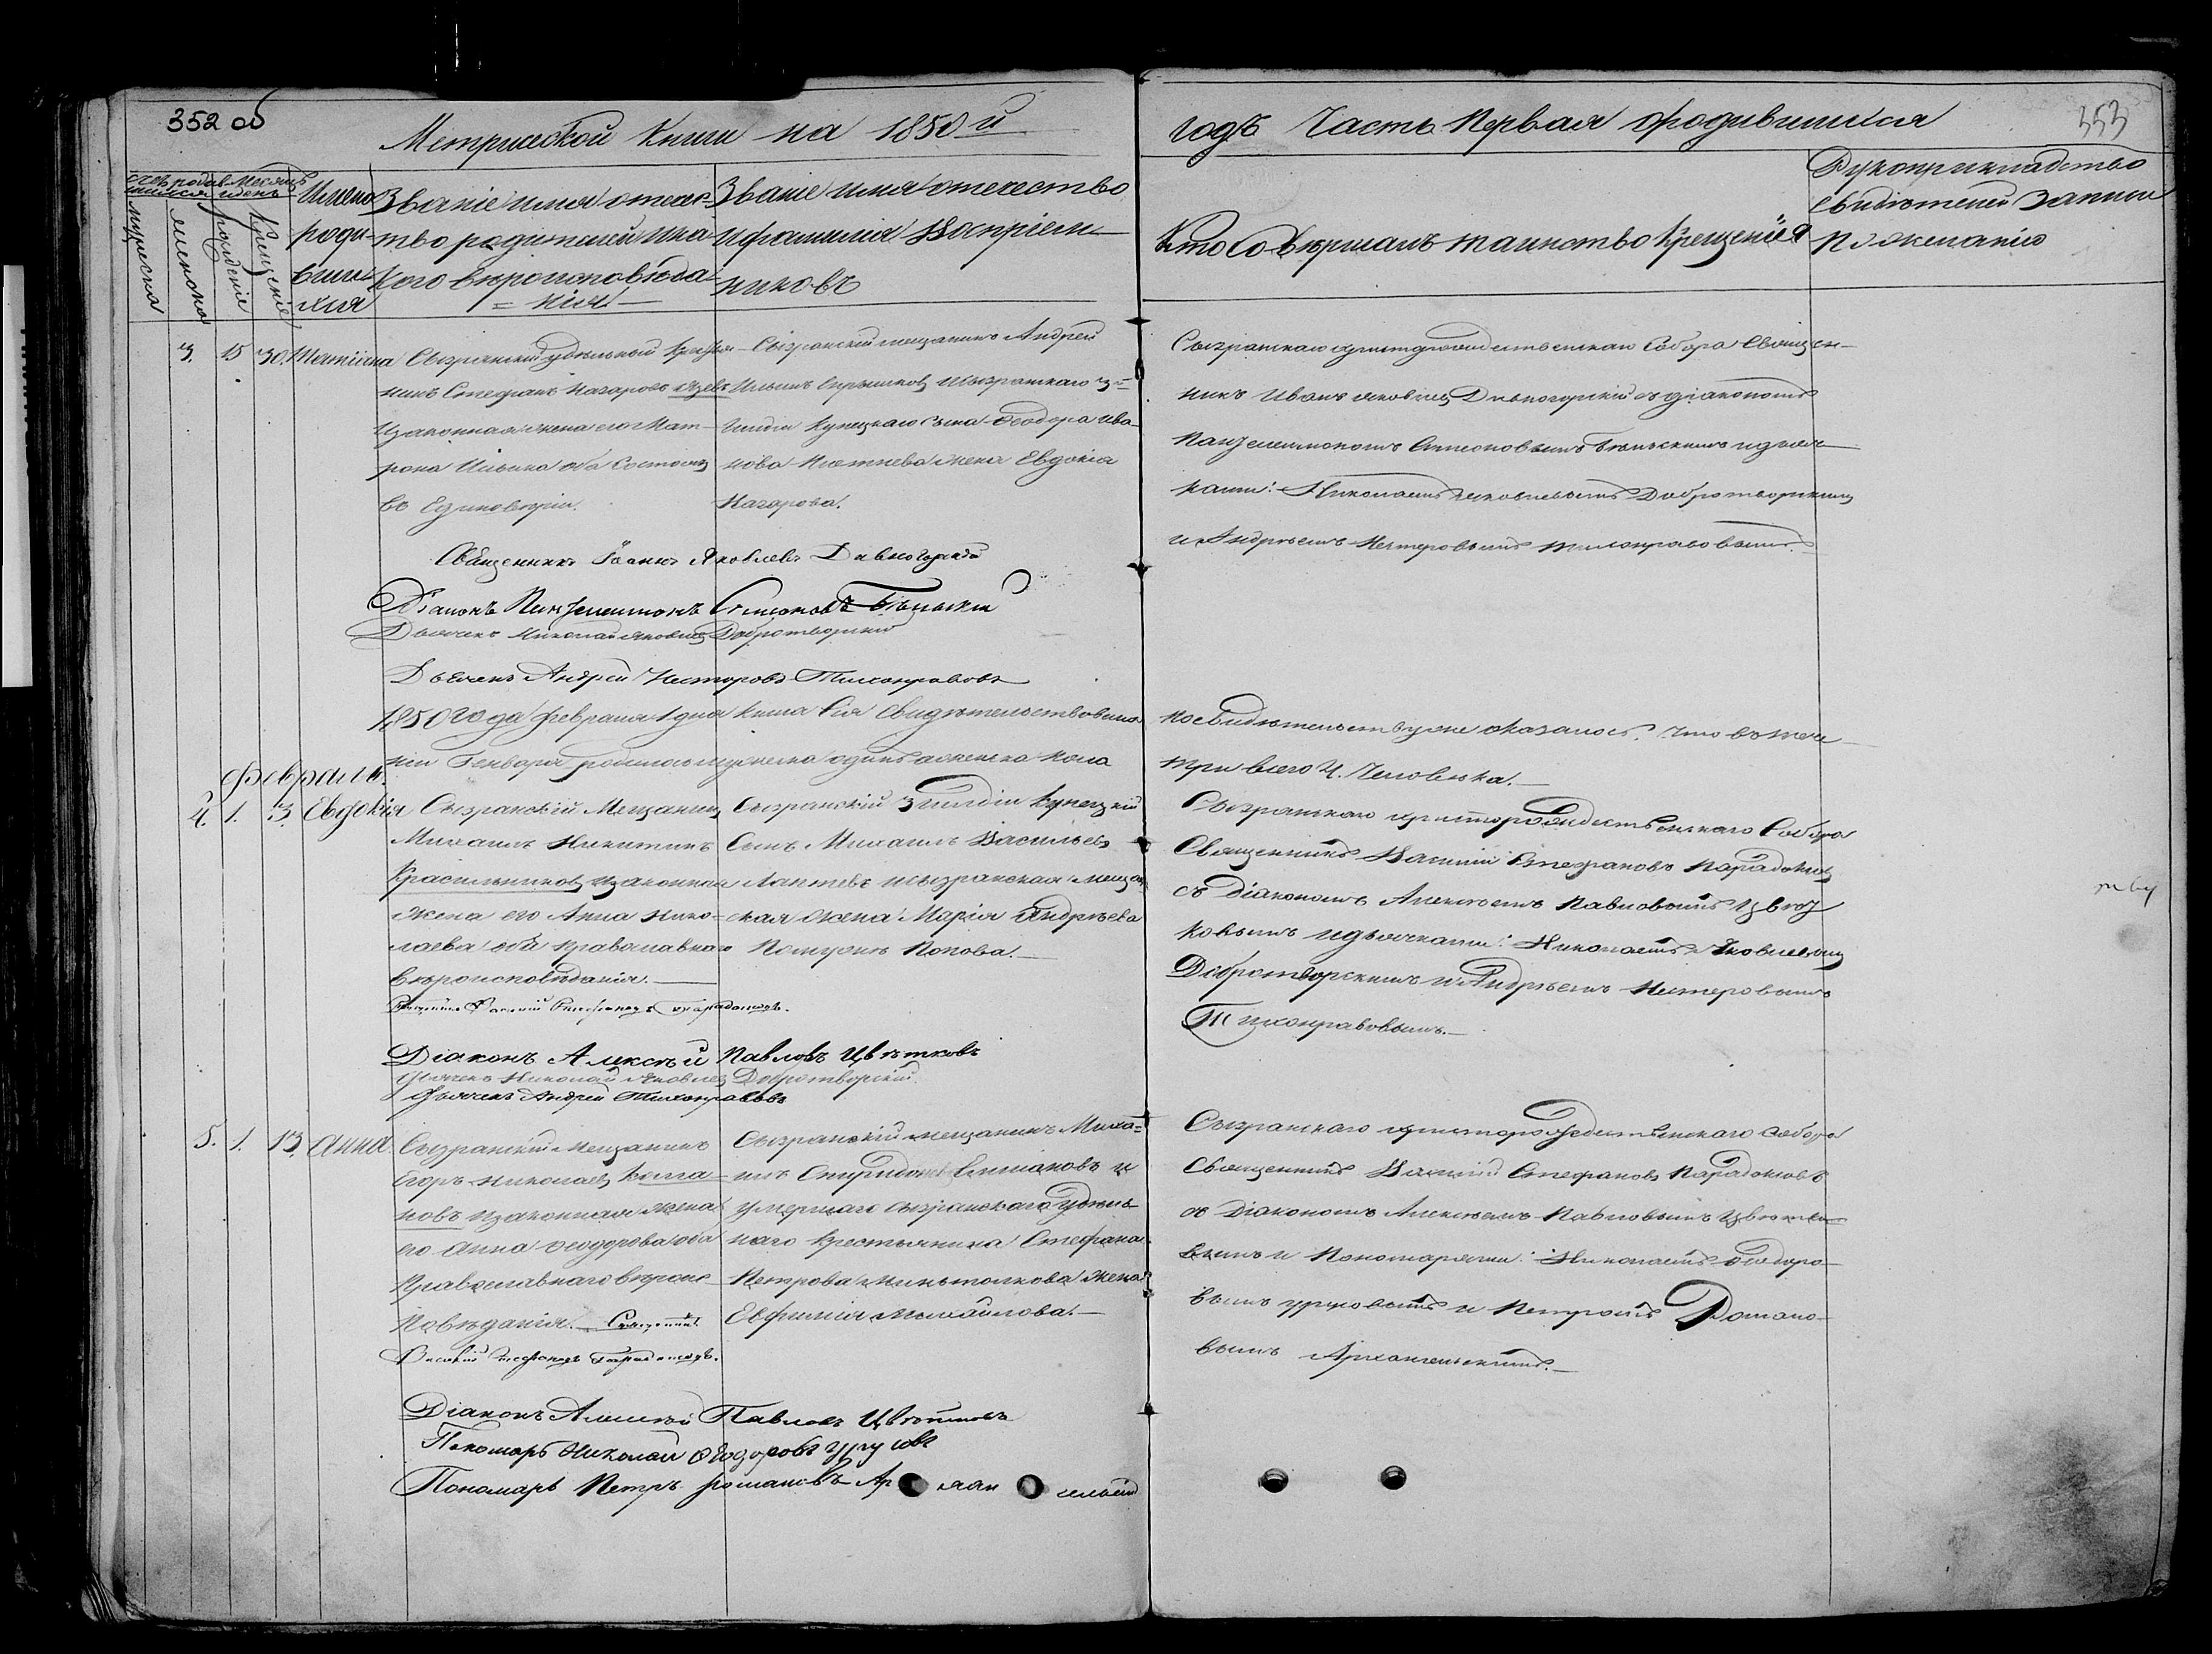 352 об
Метрической Книги на 1850 й
годъ Часть Первая о родившихся
353
Счетъ родившихся
Мужеска
Женска
Месяцъ и день
рожденіе
крещеніе
Имена
роди-
вших-
хся
Званіе имя отчес-
тво родителей и ка-
кого вероисповѣда-
= нія
Званіе имя отечество
и фамилія Воспріем-
никовъ
Кто Совершалъ таинство Крещенія
Рукоприкладство
свидѣтелей записи
По желанію
3. 15 30. Татіана
Сызранскій удѣльный Крестья-
нинъ Стефанъ Назаровъ
и законная жена его Мат-
рона Ильина оба Состоящ
въ Единоверіи.
Сызранскій мещанинъ Андрей
Ильинъ и Сызранскаго 3й
Гильдіи Купецкаго сына Феодора Ива-
нова жена Евдокія
Назарова.
Сызранскаго христорождественскаго Собора Священ-
никъ Иванъ Яковлевъ Дивногорскій съ діакономъ
Пантелеимономъ Симеоновымъ и дьяч-
ками: Николаемъ Яковлевымъ Добротворскимъ
и Андреемъ Нестеровымъ Тихонравовымъ.
Священникъ Іоаннъ Яковлевъ Дивногорскій
Діаконъ Пантелеимонъ Симеоновъ
Дьячекъ Николай Яковлевъ Добротворскій
Дьячекъ Андрей Несторовъ Тихонравовъ
1850 года февраля 1 дня книга сія свидѣтельствована
по свидѣтельству же оказалось, что въ тече-
ніи Генваря родилось мужеска одинъ а женска пола
три всего 4. Человека.
Февраль.
4. 1. 3. Евдокія
Сызранскій Мещанинъ
Михаилъ Никитинъ
Красильниковъ и законная
жена его Анна Нико-
лаева оба православнаго
вероисповѣданія.
Сызранскій 3 гильдіи Купецкій
Сынъ Михаилъ Васильевъ
Лаптевъ и Сызранская мещан-
ская жена Марія Андреева
Попова.
Сызранскаго христорождественскаго Собора
Священникъ Василій Стефановъ Парадоксовъ
съ діакономъ Алексеемъ Павловымъ Цвет-
ковымъ и дьячками: Николаемъ Яковлевымъ
Добротворскимъ и Андреемъ Нестеровымъ
Тихонравовымъ.
Священникъ Василій Стефановъ Парадоксовъ.
Діаконъ Алексѣй Павловъ Цвѣтковъ
Дьячекъ Николай Яковлевъ Добротворскій.
Дьячекъ Андрей Тихонравовъ
5. 1. 13. Анна.
Сызранскій мещанинъ
Егоръ Николаевъ
новъ и законная жена
его Анна Феодорова оба
Православнаго вероис-
поведанія. Священникъ
Василій Стефановъ Парадоксовъ.
Сызранскій мещанинъ Миха-
илъ Спиридоновъ и
умершаго сызранскаго удѣль-
наго крестьянина Стефана
Петрова жена
Евфимія Михайлова.
Сызранскаго христорождественскаго собора
Священникъ Василій Стефановъ Парадоксовъ
съ Діакономъ Алексеемъ Павловымъ Цветко-
вымъ и Пономарями: Николаемъ Феодоро-
вымъ и Петромъ Романо-
вымъ Архангельскимъ.
Діаконъ Алексѣй Павловъ Цвѣтковъ
Пономарь Николай Феодоровъ
Пономарь Петръ Романовъ Архангельскій